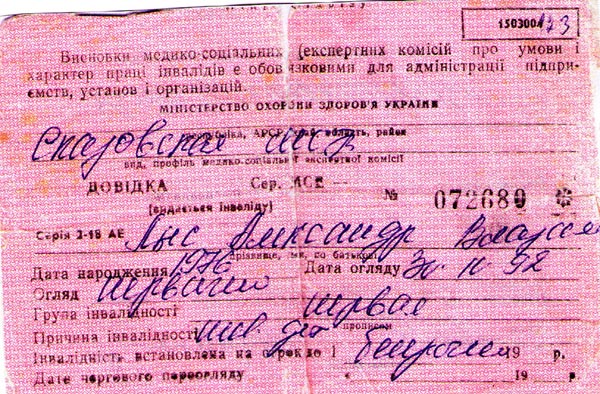 1503004 173
Висновки медико-соціальних (експертних комісій про умови і
характер праці інвалідів є обов'язковими для адміністрації підпри-
ємств, установ і організацій.
МІНІСТЕРСТВО ОХОРОНИ ЗДОРОВ'Я УКРАЇНИ
республіка, АРСР, край, область, район
вид, профіль медико-соціальної експертної комісії
ДОВІДКА Сер. МСЕ № 072680
(видається інваліду)
Серія 2-18 АЕ Лыс Александр
прізвище, ім'я, по батькові
Дата народження 1976 Дата огляду 30 11 92
Огляд первичн
Група інвалідності первая
прописом
Причина інвалідності инв дет
Інвалідність встановлена на строк до бессрочно 19 р.
Дата чергового переогляду « 19 р.